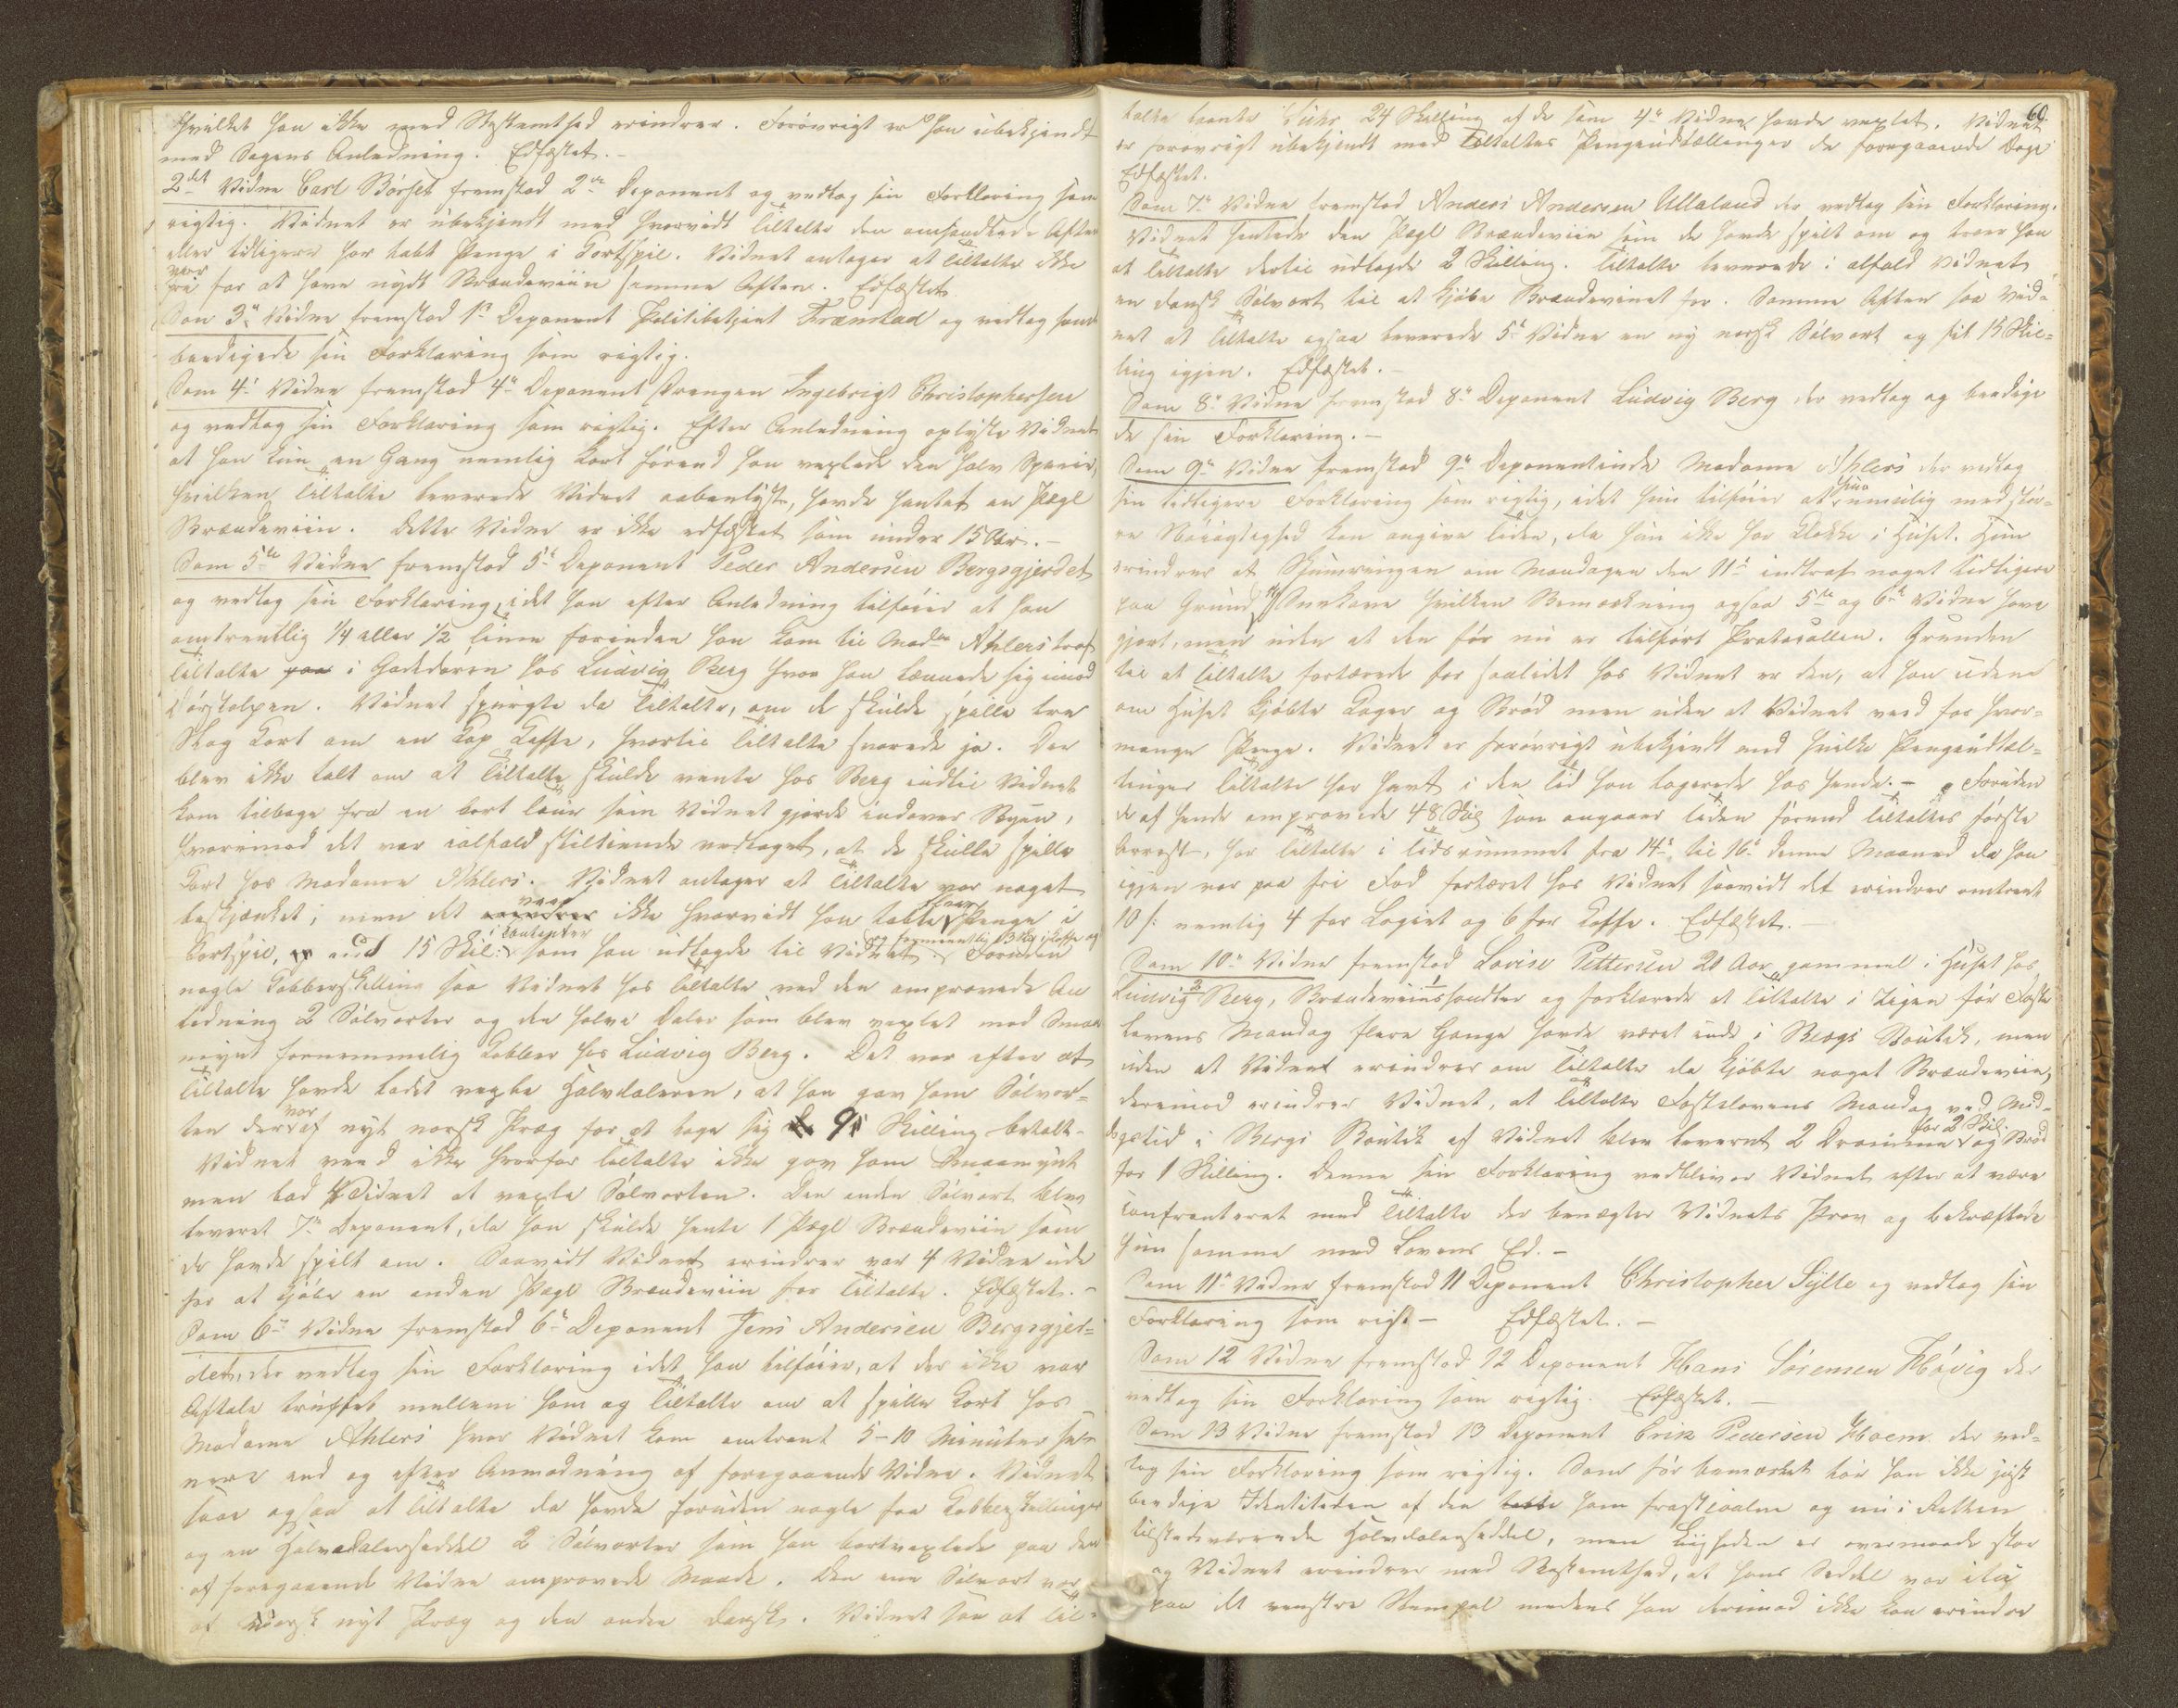 hvilket han ikke med Bestemthed erindrer. Forøvrigt er han ubekjendt
med Sagens Anledning. Edfæstet.-
2det Vidne Carl Børset fremstod 2de Deponent og vedtog sin Forklaring som
rigtig. Vidnet er ubekjendt med hvorvidt Tiltalte den omhandlede Aften
eller tidligere har tabt Penge i Kortspil. Vidnet antager at Tiltalte ikke
var fri for at have nydt Brændeviin samme Aften. Edfæstet
Som 3e Vidne fremstod 1e Deponent Politibetjent Frænstad og vedtog samt
beedigede sin Forklaring som rigtig.
Som 4e Vidne fremstod 4e Deponent Drengen Ingebrigt Christophersen
og vedtog sin Forklaring som rigtig. Efter Anledning oplyste Vidnet
at han kun en Gang nemlig kort førend han vexlede den halv Specie,
hvilken Tiltalte leverede Vidnet aabenlyst, havde hentet en Pægl
Brændeviin. Dette Vidne er ikke edfæstet som under 15 Aar.-
Som 5te Vidne fremstod 5e Deponent Peder Andersen Bergsgjerdet
og vedtog sin Forklaring, idet han efter Anledning tilføier at han
omtrentlig 1/4 eller 1/2 Time forinden han kom til Madme Ahlers traf
Tiltalte paa i Gadedøren hos Ludvig Berg hvor han lænede sig imod
Dørstolpen. Vidnet spurgte da Tiltalte, om de skulde spille tre
Slag Kort om en Kop Kaffe, hvortil Tiltalte svarede ja. Der
blev ikke talt om at Tiltalte skulde vente hos Berg indtil Vidnet
kom tilbage fra en kort Tour som Vidnet gjorde indover Byen,
hvorimod det var ialfald stiltiende vedtaget, at de skulle spille
Kort hos Madame Ahlers. Vidnet antager at Tiltalte var noget
beskjænket; men det erindrer veed ikke hvorvidt han tabte flere Penge i
Kortspil, end i Contanter 15 Skil: som han udlagde til Vidnet. Foruden
nogle Kobberskilling saa Vidnet hos Tiltalte ved den omprovede An
ledning 2 Sølvorter og den halve Daler som blev vexlet med Smaa
mynt fornemmelig Kobber hos Ludvig Berg. Det var efter at
Tiltalte havde ladet vexle Halvdaleren, at han gav ham Sølvor-
ten der var af nyt norsk Præg for at tage sig de 9 Skilling betalt.
Vidnet veed ikke hvorfor Tiltalte ikke gav ham Smaamynt
men bad Vidnet at vexle Sølvorten. Den anden Sølvort blev
leveret 7e Deponent, da han skulde hente 1 Pægl Brændeviin som
de havde spilt om. Saavidt Vidnet erindrer var 4 Vidne ude
for at kjøbe en anden Pægl Brændeviin for Tiltalte. Edfæstet.-
Som 6te Vidne fremstod 6e Deponent Jens Andersen Bergsgjer=
det, der vedtog sin Forklaring idet han tilføier, at der ikke var
Aftale truffet mellem ham og Tiltalte om at spille Kort hos
Madame Ahlers hvor Vidnet kom omtrent 5-10 Minuter se=
nere end og efter Anmodning af foregaaende Vidne. Vidnet
saae ogsaa at Tiltalte da havde foruden nogle faa Kobberskillinger
og en Halvdalerseddel 2 Sølvorter som han bortvexlede paa den
af foregaaende Vidne omprovede Maade. Den ene Sølvort var
af norsk nyt Præg og den anden dansk. Vidnet saa at Til=
60
talte hente 24 Skilling af de som 4e Vidne havde vexlet. Vidnet
er forøvrigt ubekjendt med Tiltaltes Pengeudtællinger de foregaaende Dage
Edfæstet.
Som 7e Vidne fremstod Anders Andersen Ulleland der vedtog sin Forklaring.
Vidnet hentede den Pægl Brændeviin som de havde spilt om og troer han
at Tiltalte dertil udlagde 2 Skilling. Tiltalte leverede i alfald Vidnet
en dansk Sølvort til at kjøbe Brændevinet for. Samme Aften saa Vid=
net at Tiltalte ogsaa leverede 5e Vidne en ny norsk Sølvort og fik 15 Skil=
ling igjen. Edfæstet.-
Som 8e Vidne fremstod 8e Deponent Ludvig Berg der vedtog og beedige
de sin Forklaring.-
Som 9e Vidne fremstod 9e Deponentinde Madame Ahlers der vedtog
sin tidligere Forklaring som rigtig, idet hun tilføier at hun umulig med stør=
re Nøiagtighed kan angive Tiden, da hun ikke har Klokke i Huset. Hun
erindrer at Skumringen om Mandagen den 11e indtraf noget tidligere
paa Grund af Snekave hvilken Bemærkning ogsaa 5te og 6te Vidne have
gjort, men uden at den før nu er tilført Protocollen. Grunden
til at Tiltalte fortærede for saalidet hos Vidnet er den, at han udenn
om Huset kjøbte Kager og Brød men uden at Vidnet veed for hvor=
mange Penge. Vidnet er forøvrigt ubekjendt med hvilke Pengeudtæl=
linger Tiltalte har havt i den Tid han logerede hos hende.- Foruden
de af hende omprovede 48 Skil som angaaer Tiden førend Tiltaltes første
Arrest, har Tiltalte i Tidsrummet fra 14e til 16e denne Maaned da han
igjen var paa fri Fod fortæret hos Vidnet saavidt det erindrer omtrent
10 s: nemlig 4 for Logiet og 6 for Kaffe. Edfæstet.-
Som 10e Vidne fremstod Lovise Pettersen 21 Aar gammel i Huset hos
Ludvig Berg, Brændeviinshandler og forklarede at Tiltalte i Ugen før Faste
lavens Mandag flere Gange havde været inde i Bergs Boutik, men
uden at Vidnet erindrer om Tiltalte da kjøbte noget Brændeviin,
derimod erindrer Vidnet, at Tiltalte Fastelavens Mandag ved Mid=
dagstid i Bergs Boutik af Vidnet blev leveret 2 Dramme for 2 Skil. og Brød
for 1 Skilling. Denne sin Forklaring vedbliver Vidnet efter at være
confronteret med Tiltalte der benægter Vidnets Prov og bekræftede
hun samme med Lovens Ed.-
Som 11e Vidne fremstod 11 Deponent Christopher Sylte og vedtog sin
Forklaring som rigt- Edfæstet.-
Som 12 Vidne fremstod 12 Deponent Hans Sørensen Høvig der
vedtog sin Forklaring som rigtig. Edfæstet.-
Som 13 Vidne fremstod 13 Deponent Erik Pedersen Hoem der ved=
tog sin Forklaring som rigtig. Som før bemærket tør han ikke just
beedige Identiteten af den ham frastjaalne og nu i Retten
tilstedeværende Halvdalerseddel, men Ligheden er overmaade stor
og Vidnet erindrer med Bestemthed, at hans Seddel var itu
paa det venstre Stempel medens han derimod ikke kan erindre